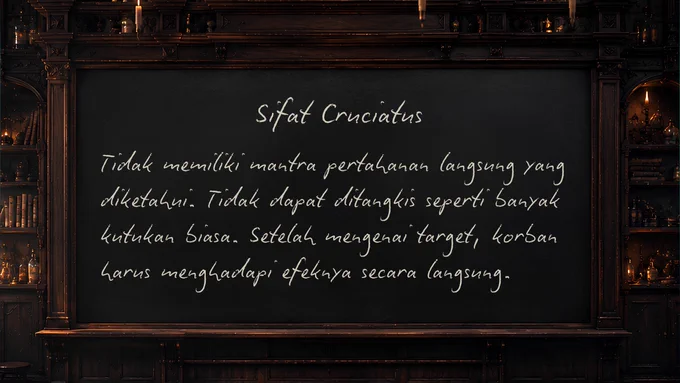 Sifat Cruciatus
Tidak memiliki mantra pertahanan langsung yang
diketahui. Tidak dapat ditangkis seperti banyak
kutukan biasa. Setelah mengenai target, korban
harus menghadapi efeknya secara langsung.